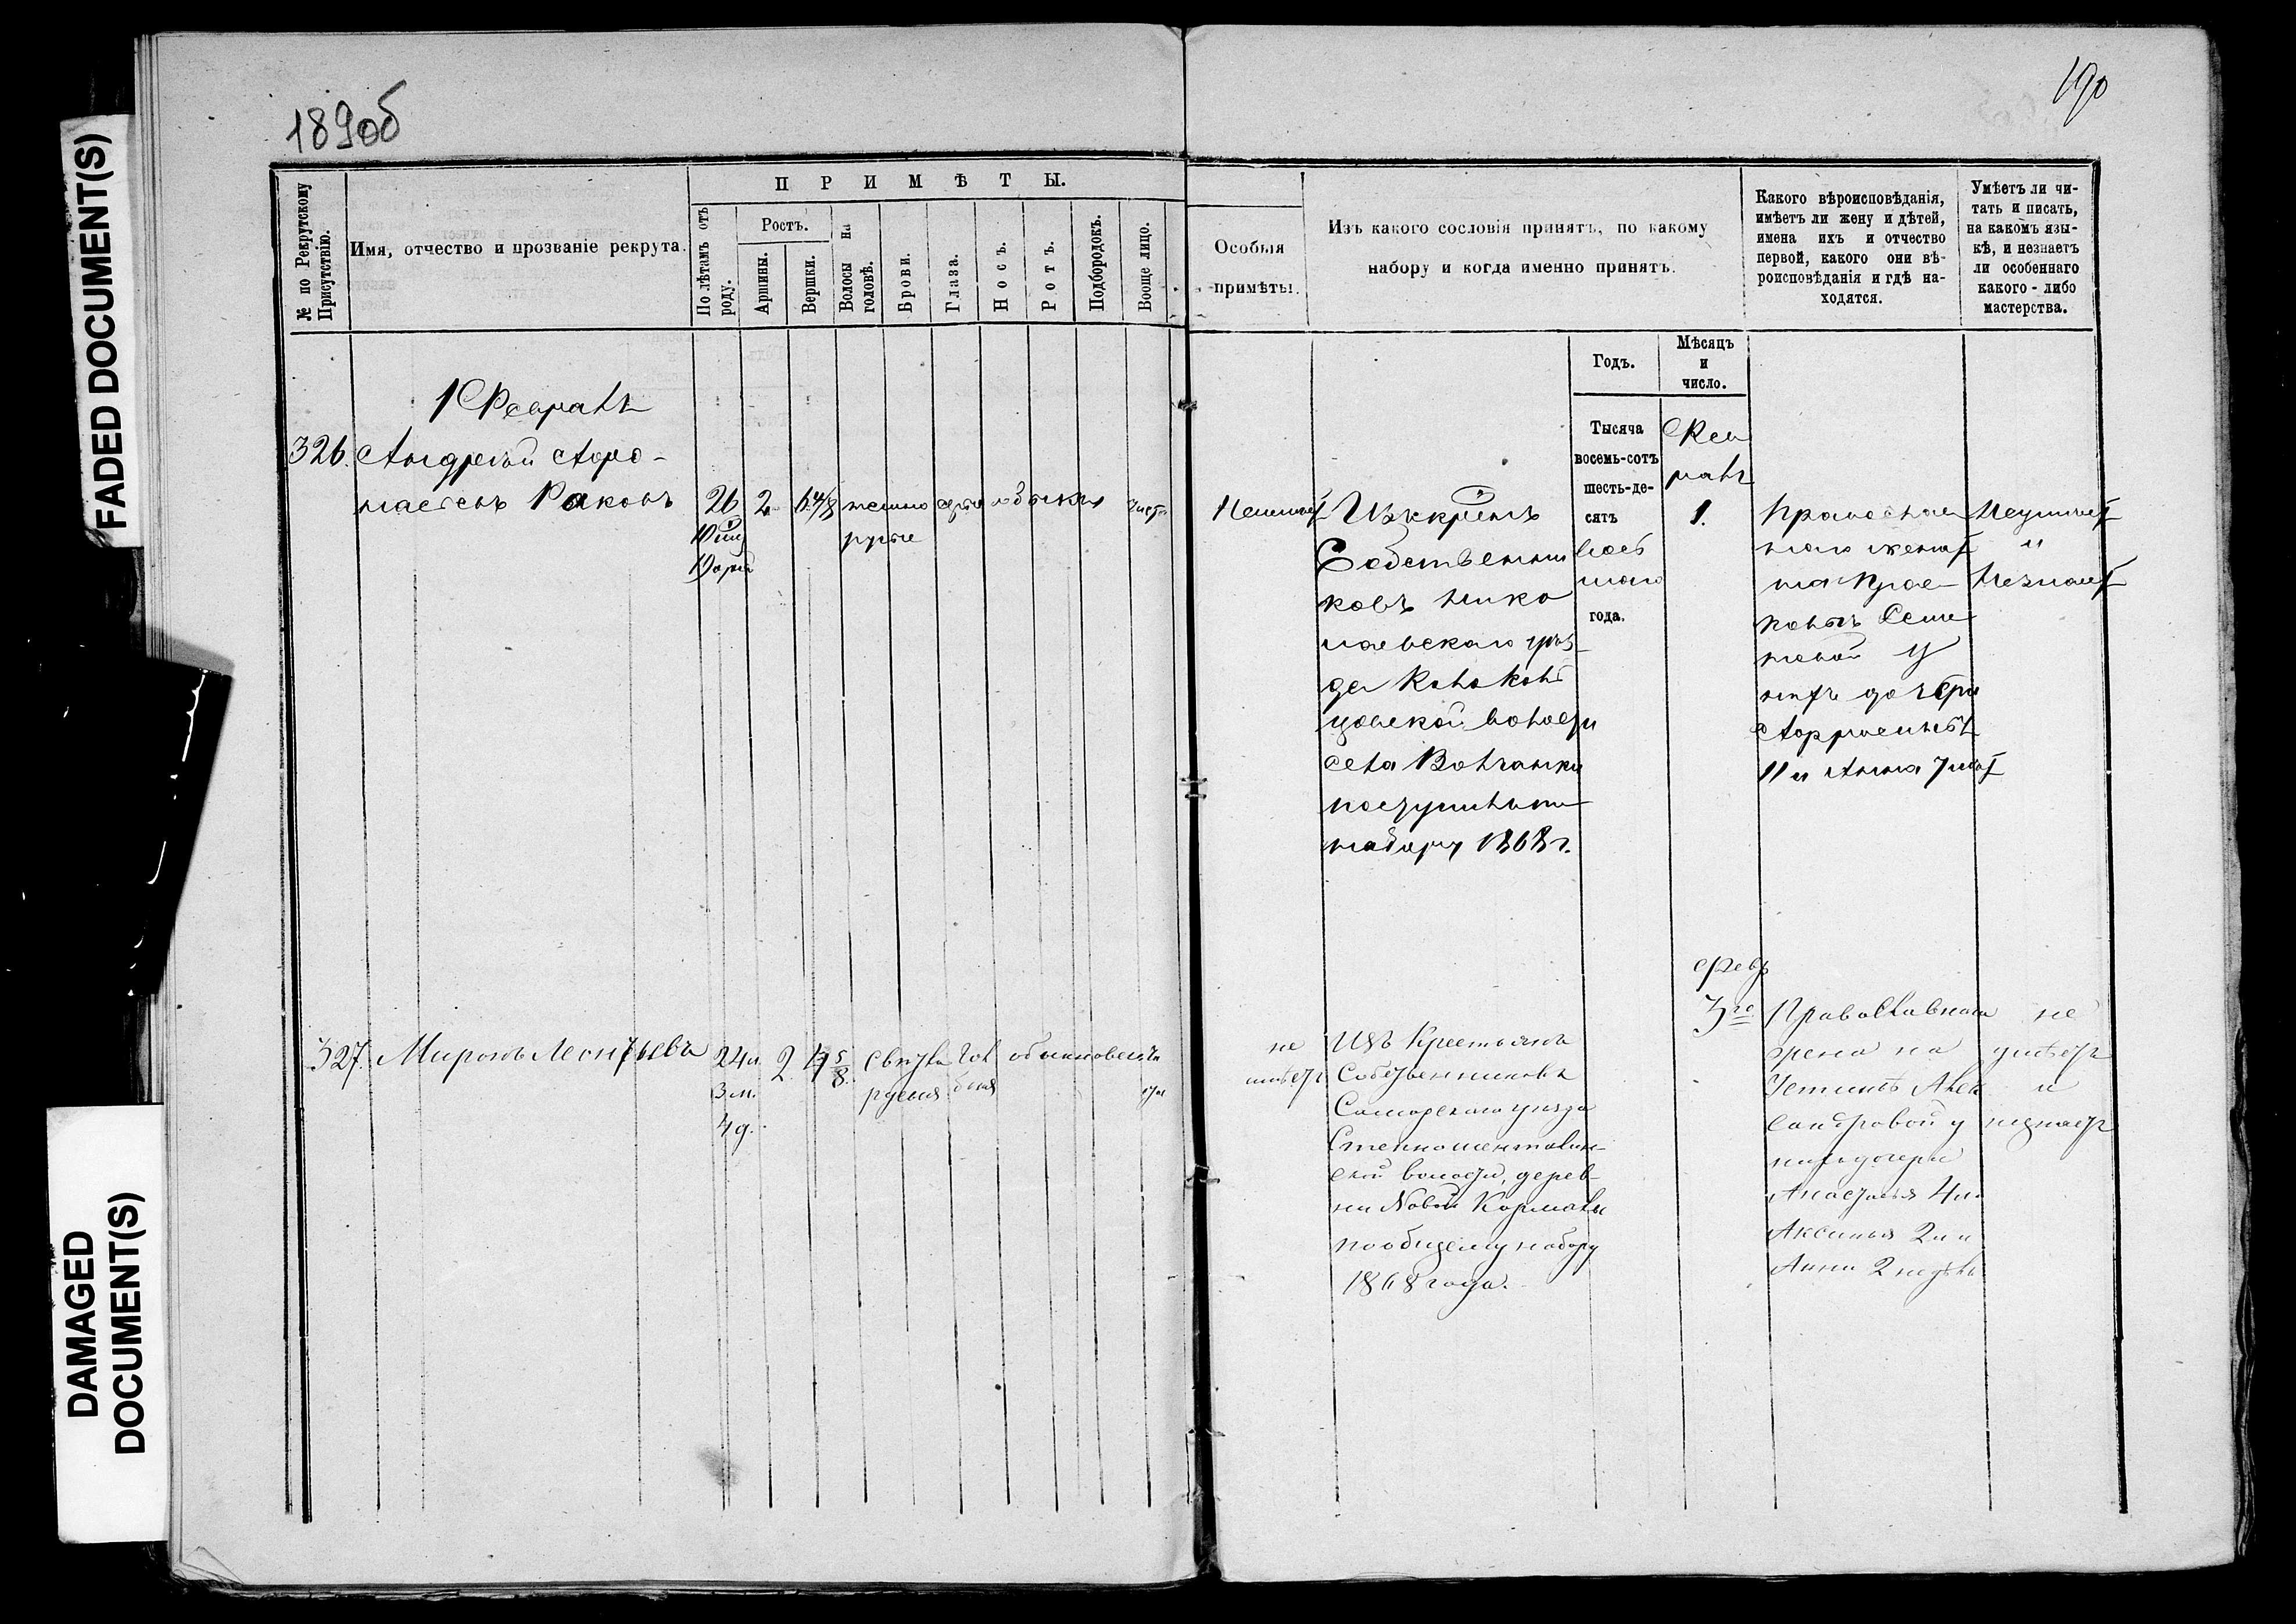 FADED DOCUMENT(S)
DAMAGED
DOCUMENT(S)
189об
190
№ по Рекрутскому Присутствію.
Имя, отчество и прозваніе рекрута.
ПРИМѢТЫ.
По лѣтамъ отъ роду.
Ростъ.
Аршины.
Вершки.
Волосы на головѣ.
Брови.
Глаза.
Носъ.
Ротъ.
Подбородокъ.
Вооще лицо.
Особыя
примѣты.
Изъ какого сословія принятъ, по какому
набору и когда именно принятъ.
Какого вѣроисповѣданія,
имѣетъ ли жену и дѣтей,
имена ихъ и отчество
первой, какого они вѣ-
роисповѣданія и гдѣ на-
ходятся.
Умѣетъ ли чи-
тать и писать,
на какомъ язы-
кѣ, и незнаетъ
ли особеннаго
какого-либо
мастерства.
Годъ.
Мѣсяцъ
и
число.
Тысяча
восемь-сотъ
шесть-де-
сятъ
года.
1 Февраля
326.
Андрей Афо-
насьевъ Раковъ
26
2
6 4/8
темно
русые
сѣрые
обыкн
чист
Изъ крест
Собственни
ковъ Нико
лаевскаго уѣз
да
волости
села Волчанки
поступилъ по
набору 1868 г.
Фев
раля
1.
Православ
наго женат
на Прас-
ковьѣ Семе
новой у
нихъ дочери
11 и Анна 7 лѣт
Неумѣет
и
Незнает
327.
Миронъ Леонтьевъ
24 л.
3 м.
4 д.
2
4 5/8
свѣтло
русыя
гол
быя
обыкновенны
не
имѣетъ
Изъ Крестьянъ
Собственниковъ
Самарскаго уѣзда
ской волости, дерев-
ни Новой Кармалы
по общему набору
1868 года.
Февр
3го
Православнаго
женатъ на
Устиньѣ Алек
сандровой у
нихъ дочери
Анастасья 4 л.
Аксинья 2 л и
Анна 2 недѣль
не
умѣетъ
и
незнаетъ